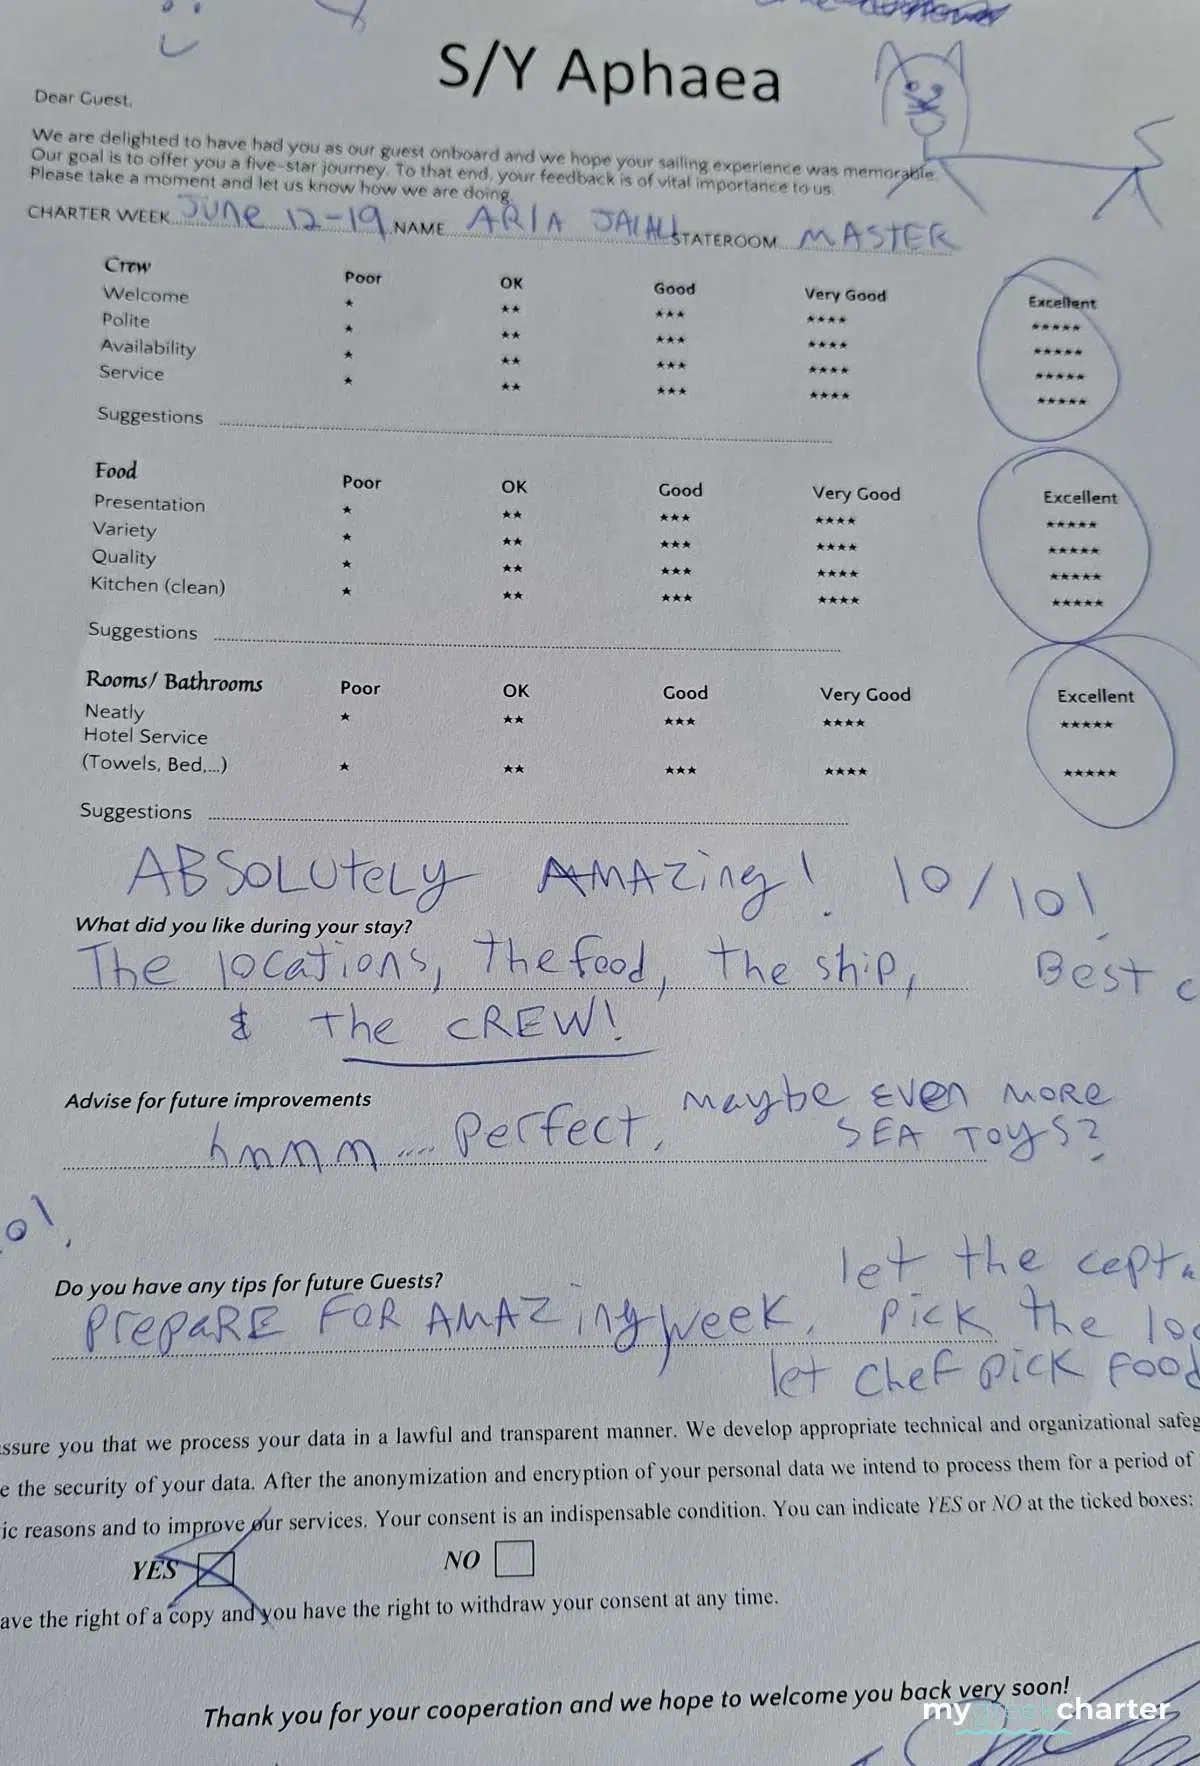 S/Y Aphaea
Dear Guest,
We are delighted to have had you as our guest onboard and we hope your sailing experience was memorable.
Our goal is to offer you a five-star journey. To that end, your feedback is of vital importance to us.
Please take a moment and let us know how we are doing.
CHARTER WEEK JUNE 12-19 NAME ARIA JALALI STATEROOM MASTER
Crew Poor OK Good Very Good Excellent
Welcome * ** *** **** *****
Polite * ** *** **** *****
Availability * ** *** **** *****
Service * ** *** **** *****
Suggestions
Food Poor OK Good Very Good Excellent
Presentation * ** *** **** *****
Variety * ** *** **** *****
Quality * ** *** **** *****
Kitchen (clean) * ** *** **** *****
Suggestions
Rooms/ Bathrooms Poor OK Good Very Good Excellent
Neatly * ** *** **** *****
Hotel Service
(Towels, Bed,...) * ** *** **** *****
Suggestions
ABSOLUTELY AMAZing! 10/10!
What did you like during your stay?
The locations, the food, the ship, Best c
& the CREW!
Advise for future improvements
hmmm.... Perfect, maybe EVEN MORE
SEA TOYS?
Do you have any tips for future Guests? let the capta
PrepaRE FOR AMAZing week. pick the loc
let chef pick food
ssure you that we process your data in a lawful and transparent manner. We develop appropriate technical and organizational safeg
e the security of your data. After the anonymization and encryption of your personal data we intend to process them for a period of
ic reasons and to improve our services. Your consent is an indispensable condition. You can indicate YES or NO at the ticked boxes:
YES NO
ave the right of a copy and you have the right to withdraw your consent at any time.
Thank you for your cooperation and we hope to welcome you back very soon!
mygreekcharter